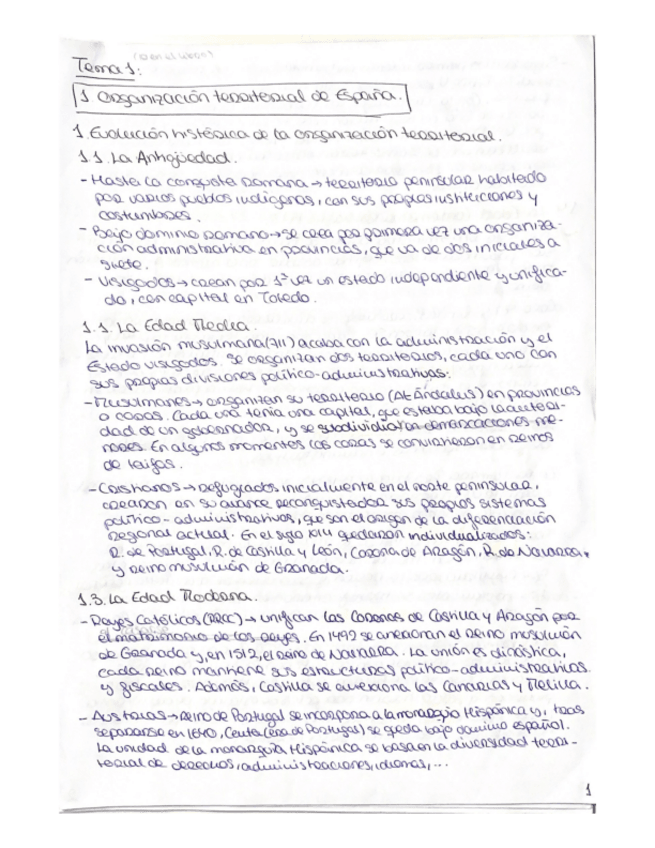 Tema 1:
1 Organización territorial de España.
1 Evolución histórica de la organización territorial.
1.1. La Antigüedad.
- Hasta la conquista romana → territorio peninsular habitado
por varios pueblos indígenas, con sus propias instituciones y
costumbres.
- Bajo dominio romano → se crea por primera vez una organiza-
ción administrativa en provincias, que va de dos iniciales a
siete.
- Visigodos → crean por 1ª vez un estado independiente y unifica-
do, con capital en Toledo.
1.1. La Edad Media.
La invasión musulmana (711) acaba con la administración y el
Estado visigodos. Se organizan dos territorios, cada uno con
sus propias divisiones político-administrativas:
- Musulmanes → organizan su territorio (Al-Ándalus) en provincias
o coras. Cada una tenía una capital, que estaba bajo la autori-
dad de un gobernador, y se subdividía en demarcaciones me-
nores. En algunos momentos las coras se convirtieron en reinos
de taifas.
- Cristianos → Refugiados inicialmente en el norte peninsular,
crearon en su avance reconquistador sus propios sistemas
político-administrativos, que son el origen de la diferenciación
regional actual. En el siglo XIII quedaron individualizados:
R. de Portugal, R. de Castilla y León, Corona de Aragón, R. de Navarra,
y reino musulmán de Granada.
1.3. La Edad Moderna.
- Reyes Católicos (RRCC) → unifican las Coronas de Castilla y Aragón por
el matrimonio de los reyes. En 1492 se anexionan el reino musulmán
de Granada y, en 1512, el reino de Navarra. La unión es dinástica,
cada reino mantiene sus estructuras político-administrativas
y fiscales. Además, Castilla se anexiona las Canarias y Melilla.
- Austrias → Reino de Portugal se incorpora a la monarquía Hispánica y, tras
separarse en 1640, Ceuta (era de Portugal) se queda bajo dominio español.
La unidad de la monarquía Hispánica se basa en la diversidad terri-
torial de derechos, administraciones, idiomas, ...
1